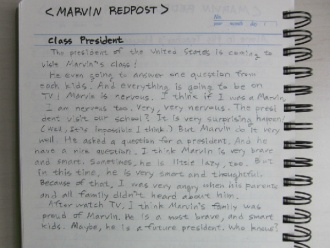 <MARVIN REDPOST>
No.
Class President
The president of the United States is coming to
visit Marvin's class!
He even going to answer one question from
each kids. And everything is going to be on
TV! Marvin is nervous. I think if I was a Marvin,
I am nervous too. Very, very nervous. The presi
dent visit our school? It is very surprising happen!
(Well, It's impossible I think.) But Marvin do it very
well. He asked a question for a president. And he
have a nice question. I think Marvin is very brave
and smart. Sometimes, he is little lazy, too. But
in this time, he is very smart and thoughtful.
Because of that, I was very angry when his parents
and all family didn't heard about him.
After watch TV, I think Marvin's family was
proud of Marvin. He is a most brave, and smart
kids. Maybe, he is a future president. Who knows?